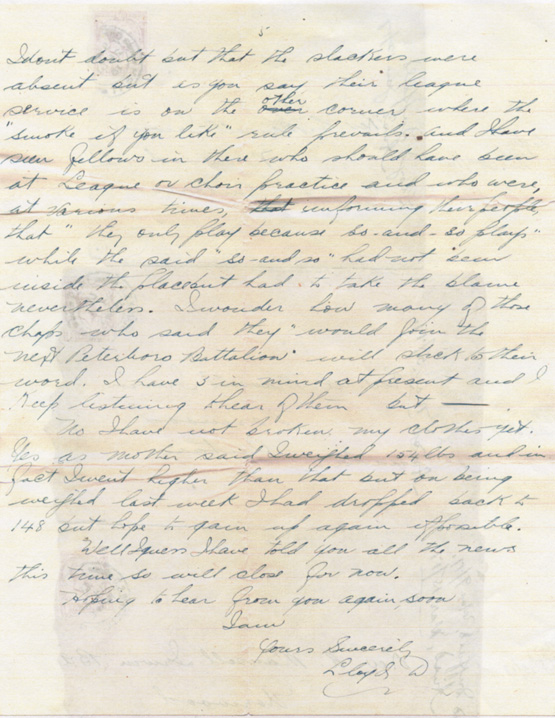 5
I dont doubt but that the slackers were
absent but as you say their league
service is on the other corner where the
"smoke if you like" rule prevails. And I have
seen fellows in there who should have been
at League or choir practice and who were,
at various times, informing their people
that "they only play because so-and-so plays"
while the said "so-and-so" had not been
inside the place but had to take the blame
nevertheless. I wonder how many of those
chaps who said they "would join the
next Peterboro Battalion" will stick to their
word. I have 5 in mind at present and I
keep listening to hear of them but —
No I have not broken my clothes yet.
Yes as mother said I weighed 154 lbs and in
fact I went higher than that but on being
weighed last week I had dropped back to
148 but hope to gain up again if possible.
Well I guess I have told you all the news
this time so will close for now.
Hoping to hear from you again soon
I am
Yours Sincerely
Lloyd D